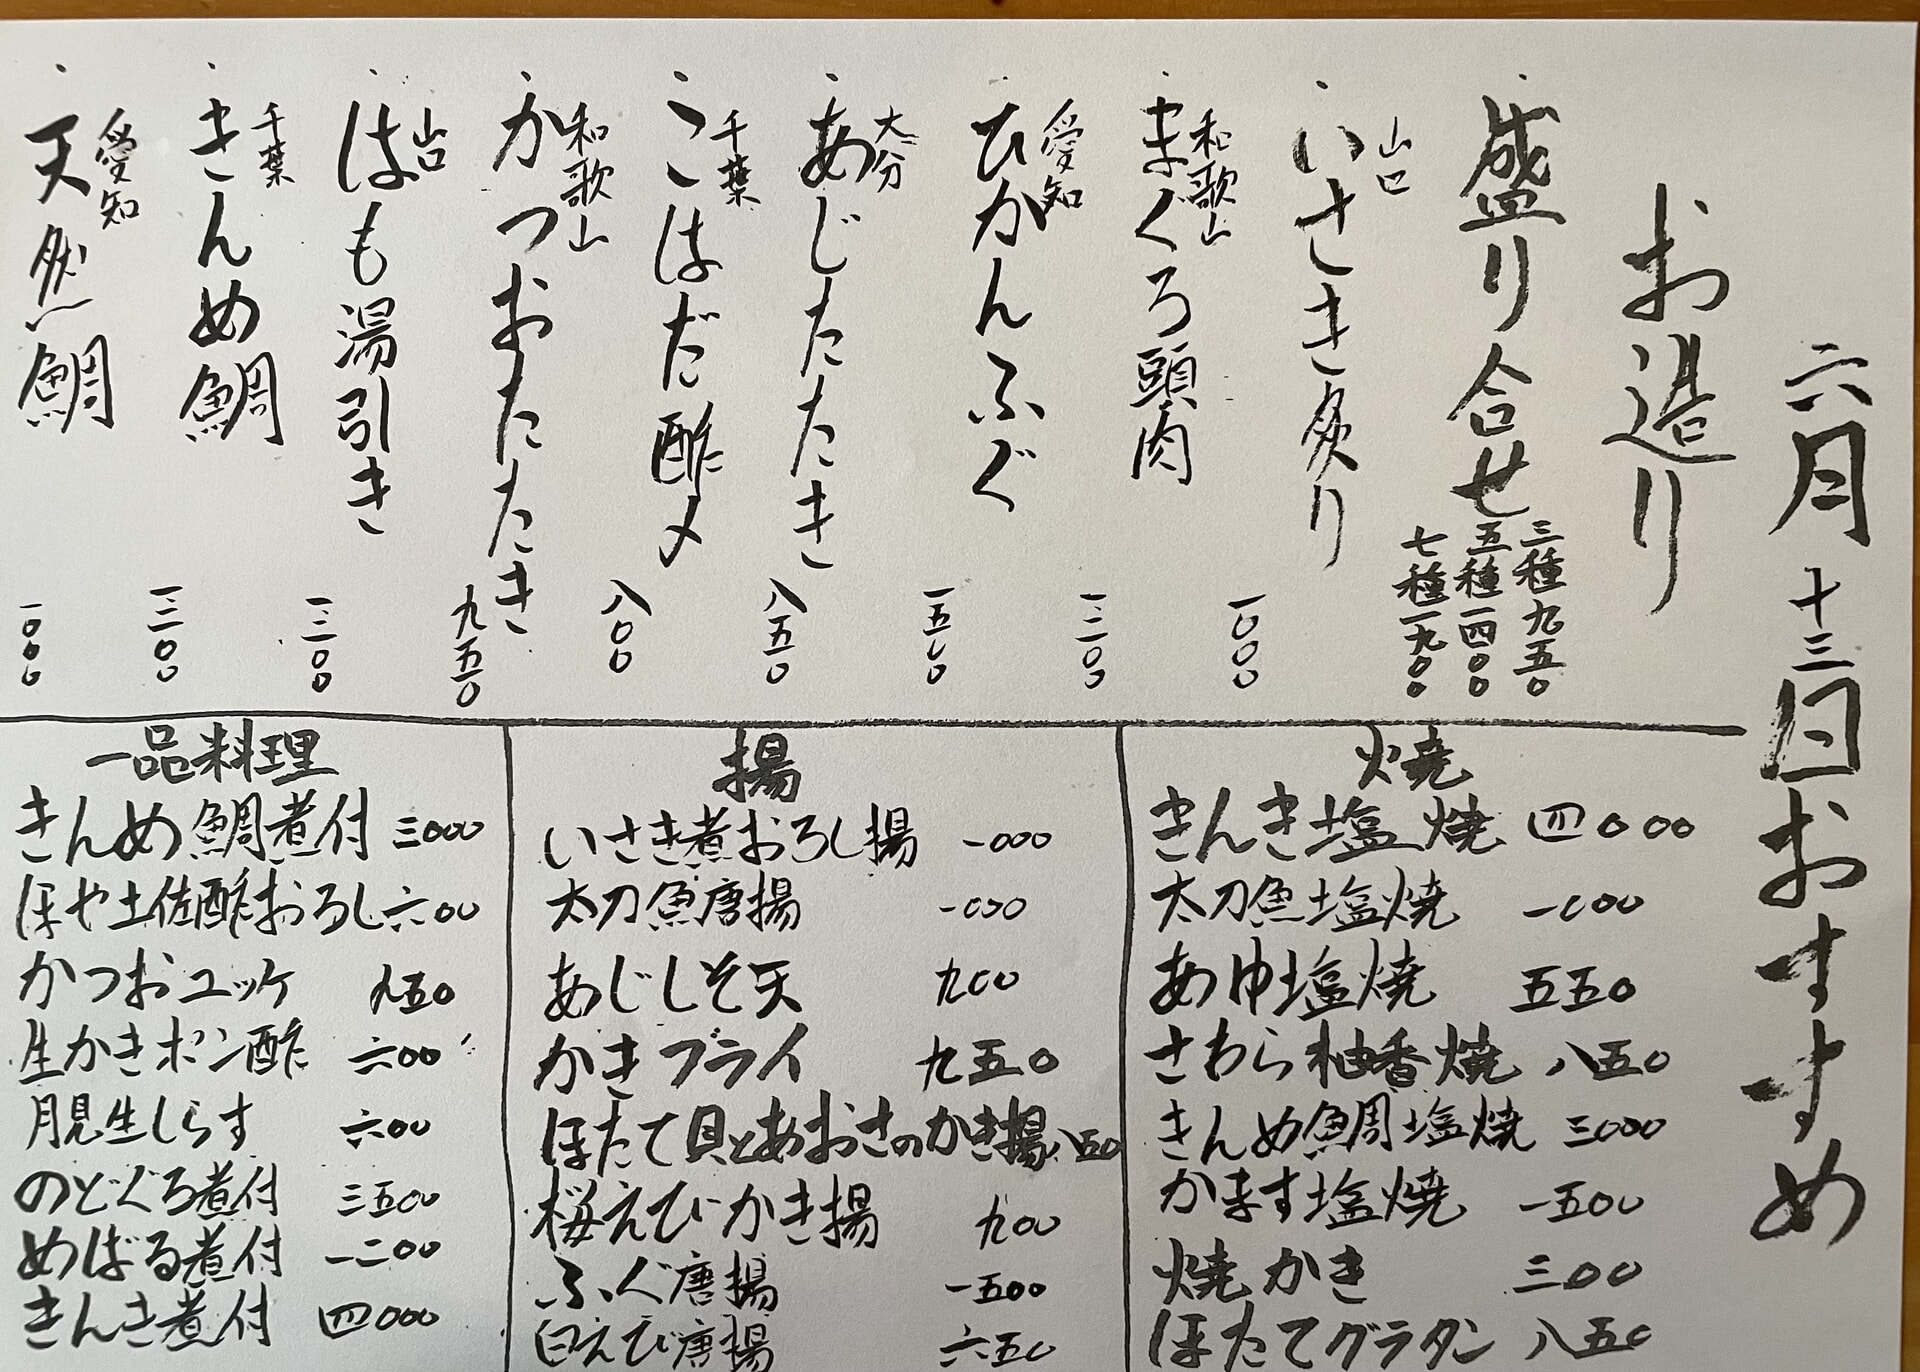 六月十三日おすすめ
お造り
盛り合せ 三種 九五〇
五種 一四〇〇
七種 一九〇〇
山口 いさき炙り 一〇〇〇
和歌山 まぐろ頭肉 一二〇〇
愛知 ひがんふぐ 一五〇〇
大分 あじたたき 八五〇
千葉 こはだ酢〆 八〇〇
和歌山 かつおたたき 九五〇
山口 はも湯引き 一二〇〇
千葉 きんめ鯛 一二〇〇
愛知 天然鯛 一〇〇〇
焼
きんき塩焼 四〇〇〇
太刀魚塩焼 一〇〇〇
あゆ塩焼 五五〇
さわら柚香焼 八五〇
きんめ鯛塩焼 三〇〇〇
かます塩焼 一五〇〇
焼かき 三〇〇
ほたてグラタン 八五〇
揚
いさき煮おろし揚 一〇〇〇
太刀魚唐揚 一〇〇〇
あじしそ天 九〇〇
かきフライ 九五〇
ほたて貝とあおさのかき揚 八五〇
桜えびかき揚 九〇〇
ふぐ唐揚 一五〇〇
白えび唐揚 六五〇
一品料理
きんめ鯛煮付 三〇〇〇
ほや土佐酢おろし 六〇〇
かつおユッケ 九五〇
生かきポン酢 六〇〇
月見生しらす 六〇〇
のどぐろ煮付 三五〇〇
めばる煮付 一二〇〇
きんき煮付 四〇〇〇